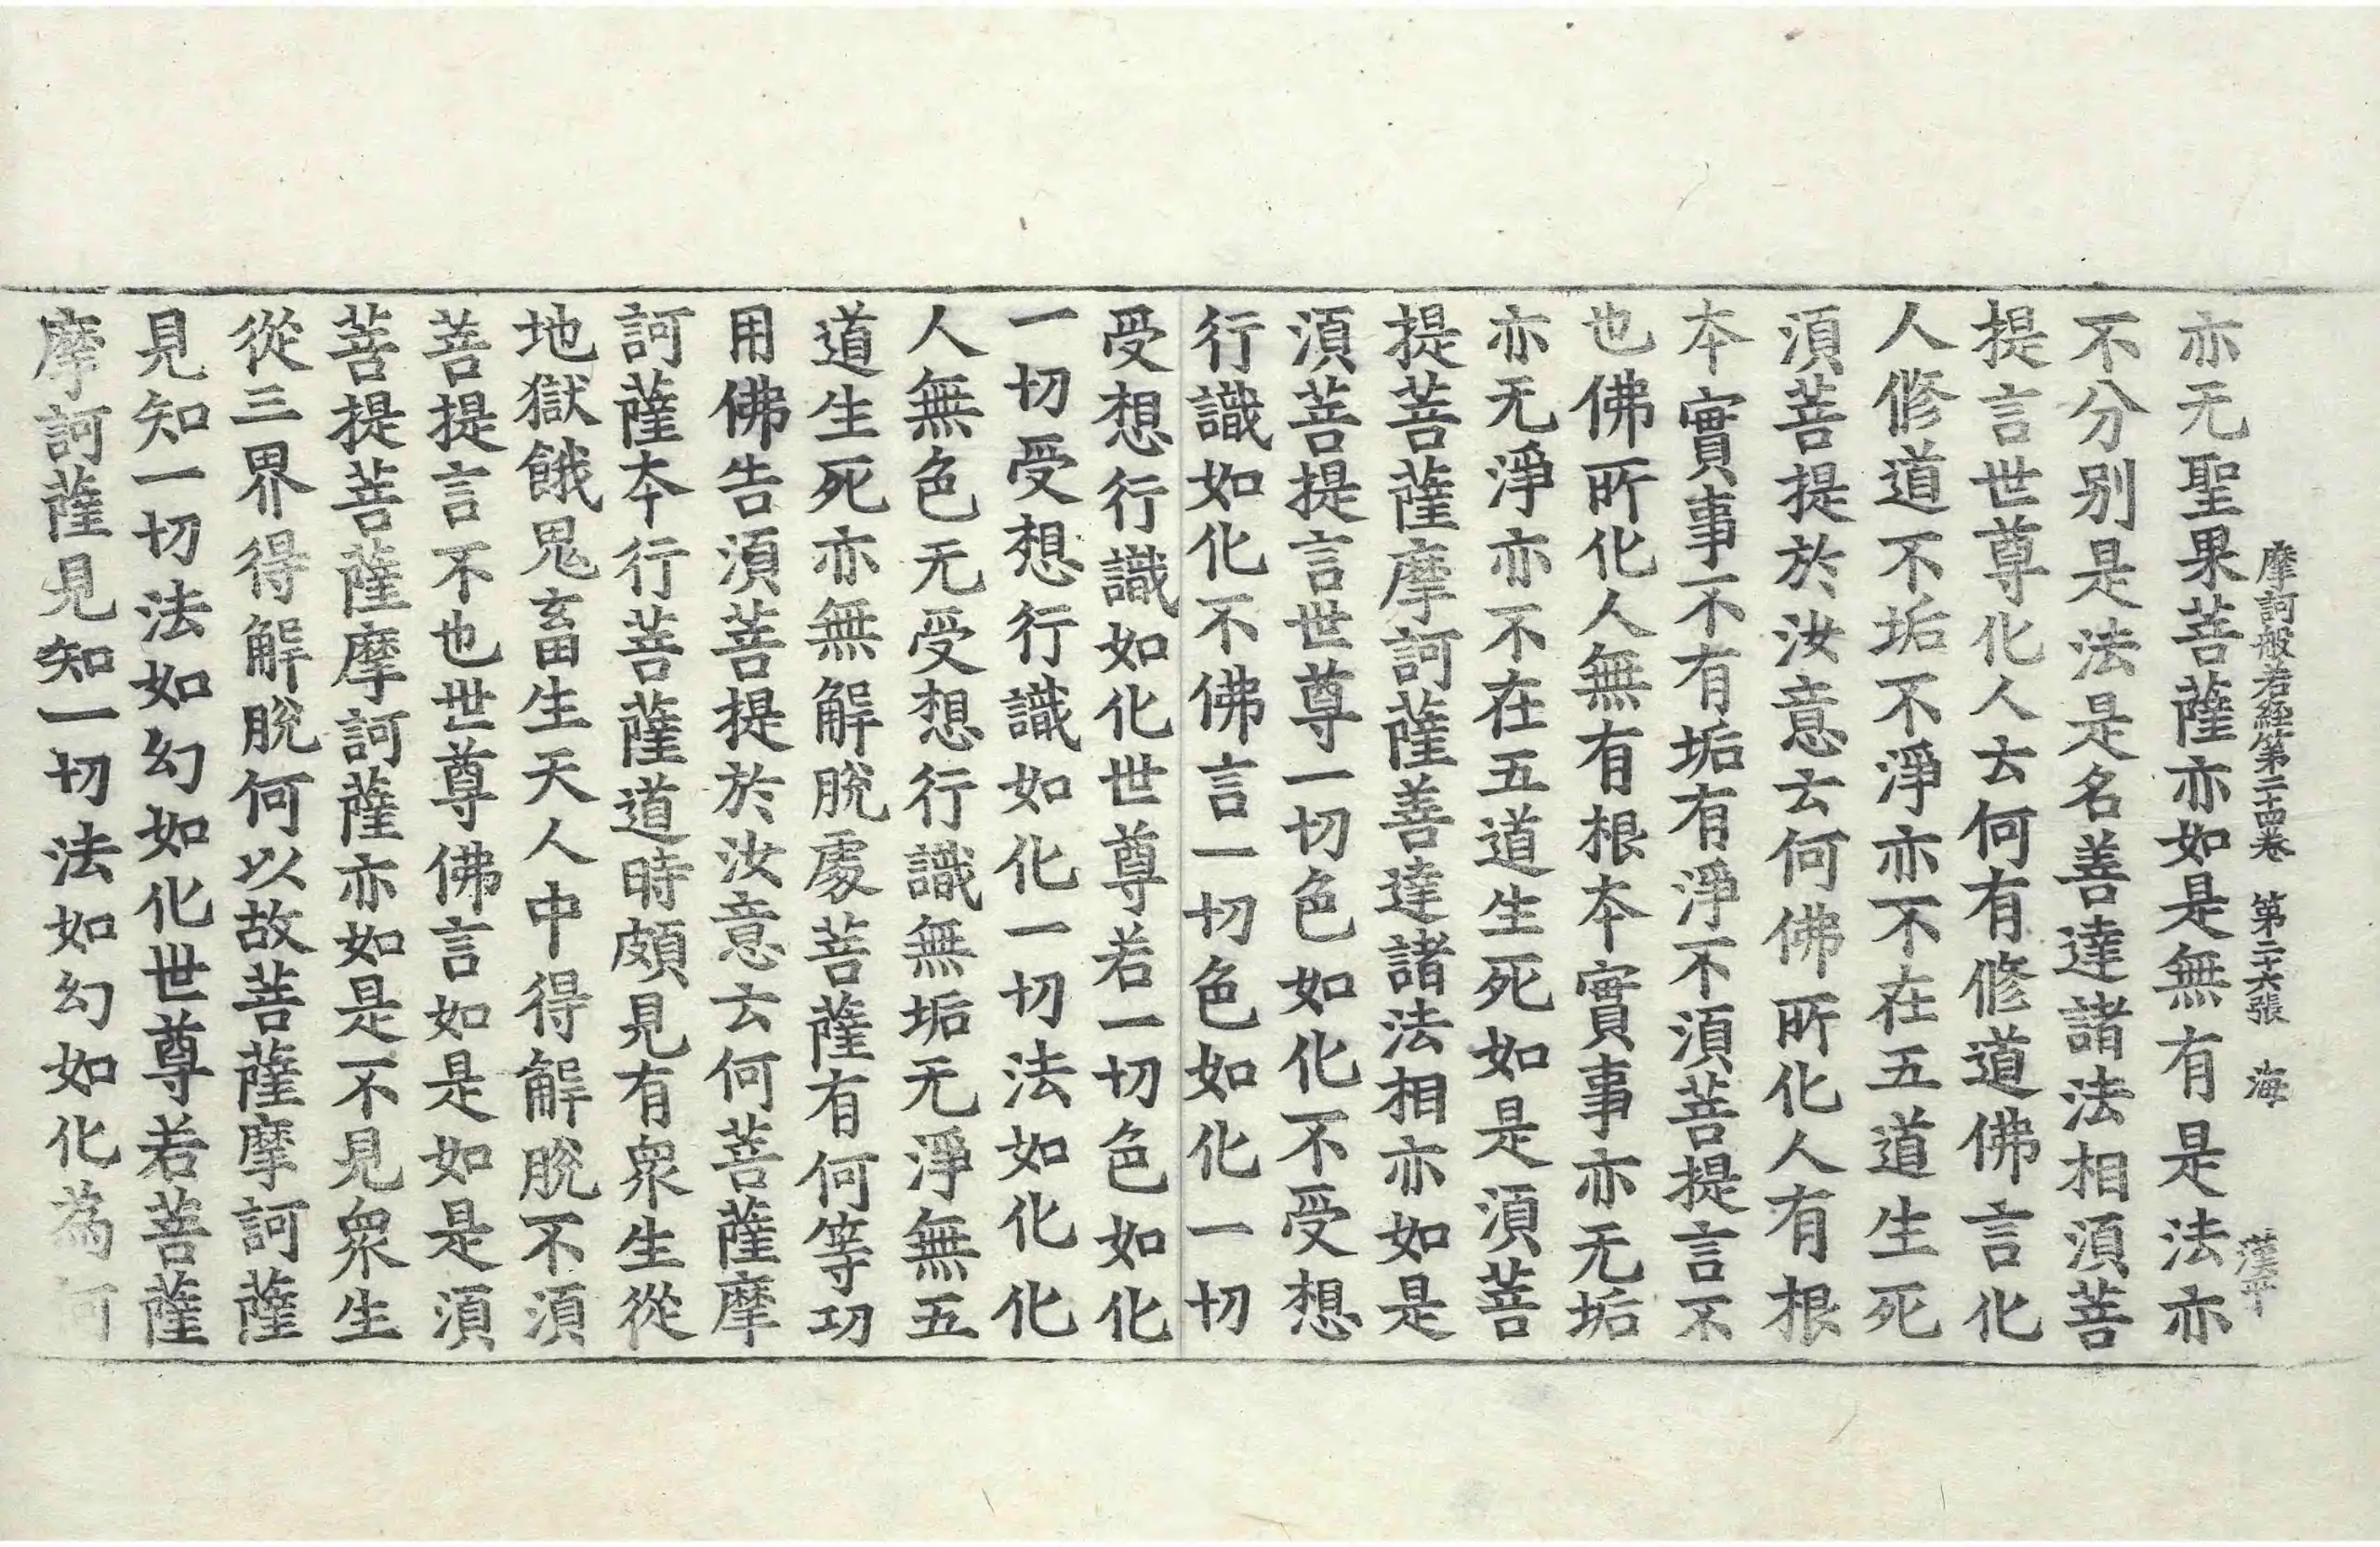 摩訶般若經第二十四卷　第二十六張　海　漢平
亦无聖果菩薩亦如是無有是法亦
不分别是法是名善達諸法相須菩
提言世尊化人云何有修道佛言化
人修道不垢不淨亦不在五道生死
須菩提於汝意云何佛所化人有根
本實事不有垢有淨不須菩提言不
也佛所化人無有根本實事亦无垢
亦无淨亦不在五道生死如是須菩
提菩薩摩訶薩善達諸法相亦如是
須菩提言世尊一切色如化不受想
行識如化不佛言一切色如化一切
受想行識如化世尊若一切色如化
一切受想行識如化一切法如化化
人無色无受想行識無垢无淨無五
道生死亦無解脫處菩薩有何等功
用佛告須菩提於汝意云何菩薩摩
訶薩本行菩薩道時頗見有衆生從
地獄餓鬼畜生天人中得解脫不須
菩提言不也世尊佛言如是如是須
菩提菩薩摩訶薩亦如是不見衆生
從三界得解脫何以故菩薩摩訶薩
見知一切法如幻如化世尊若菩薩
摩訶薩見知一切法如幻如化為何